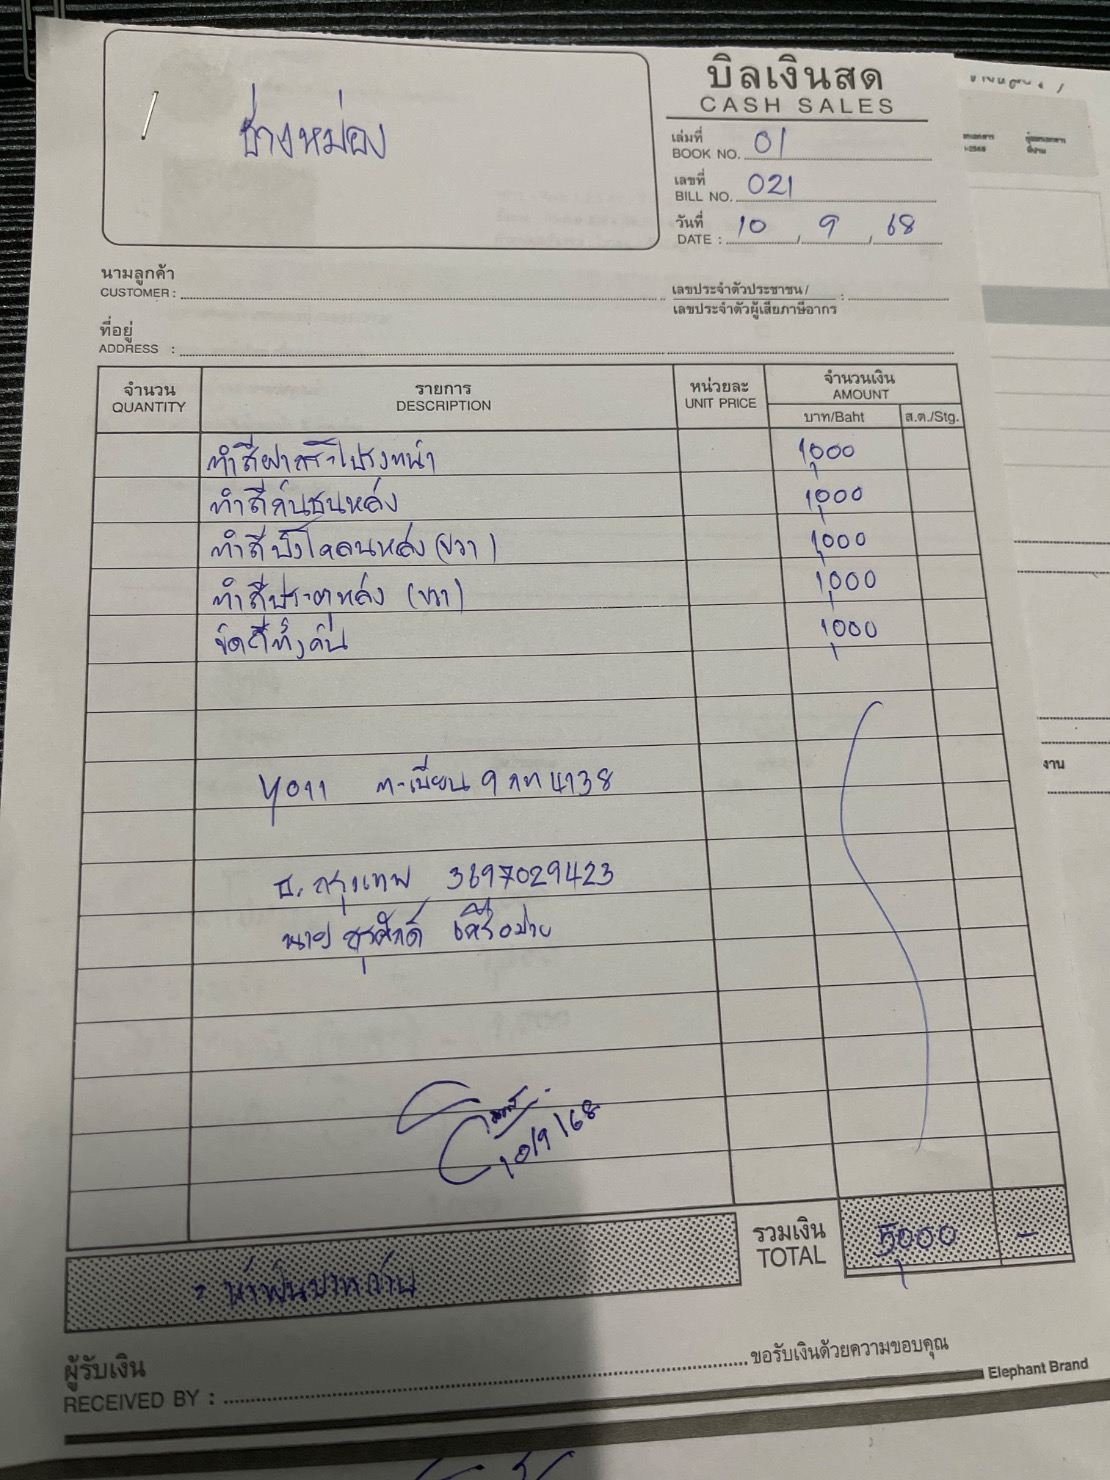 บิลเงินสด
CASH SALES
ช่างหม่อง
เล่มที่
BOOK NO. 01
เลขที่
BILL NO. 021
วันที่
DATE : 10 / 9 / 68
นามลูกค้า
CUSTOMER :
เลขประจำตัวประชาชน /
เลขประจำตัวผู้เสียภาษีอากร :
ที่อยู่
ADDRESS :
จำนวน รายการ หน่วยละ จำนวนเงิน
QUANTITY DESCRIPTION UNIT PRICE AMOUNT
บาท/Baht ส.ต./Stg.
ทำสีฝากระโปรงหน้า 1,000
ทำสีกันชนหลัง 1,000
ทำสีบังโคลนหลัง (ขวา) 1,000
ทำสีประตูหลัง (ขวา) 1,000
ขัดสีทั้งคัน 1,000
ทะเบียน 9 กท 4138
ธ. กรุงเทพ 3697029423
นาย สุรศักดิ์
10/9/68
รวมเงิน
TOTAL 5,000 -
= ห้าพันบาทถ้วน
ผู้รับเงิน
RECEIVED BY : ขอรับเงินด้วยความขอบคุณ
Elephant Brand
งาน